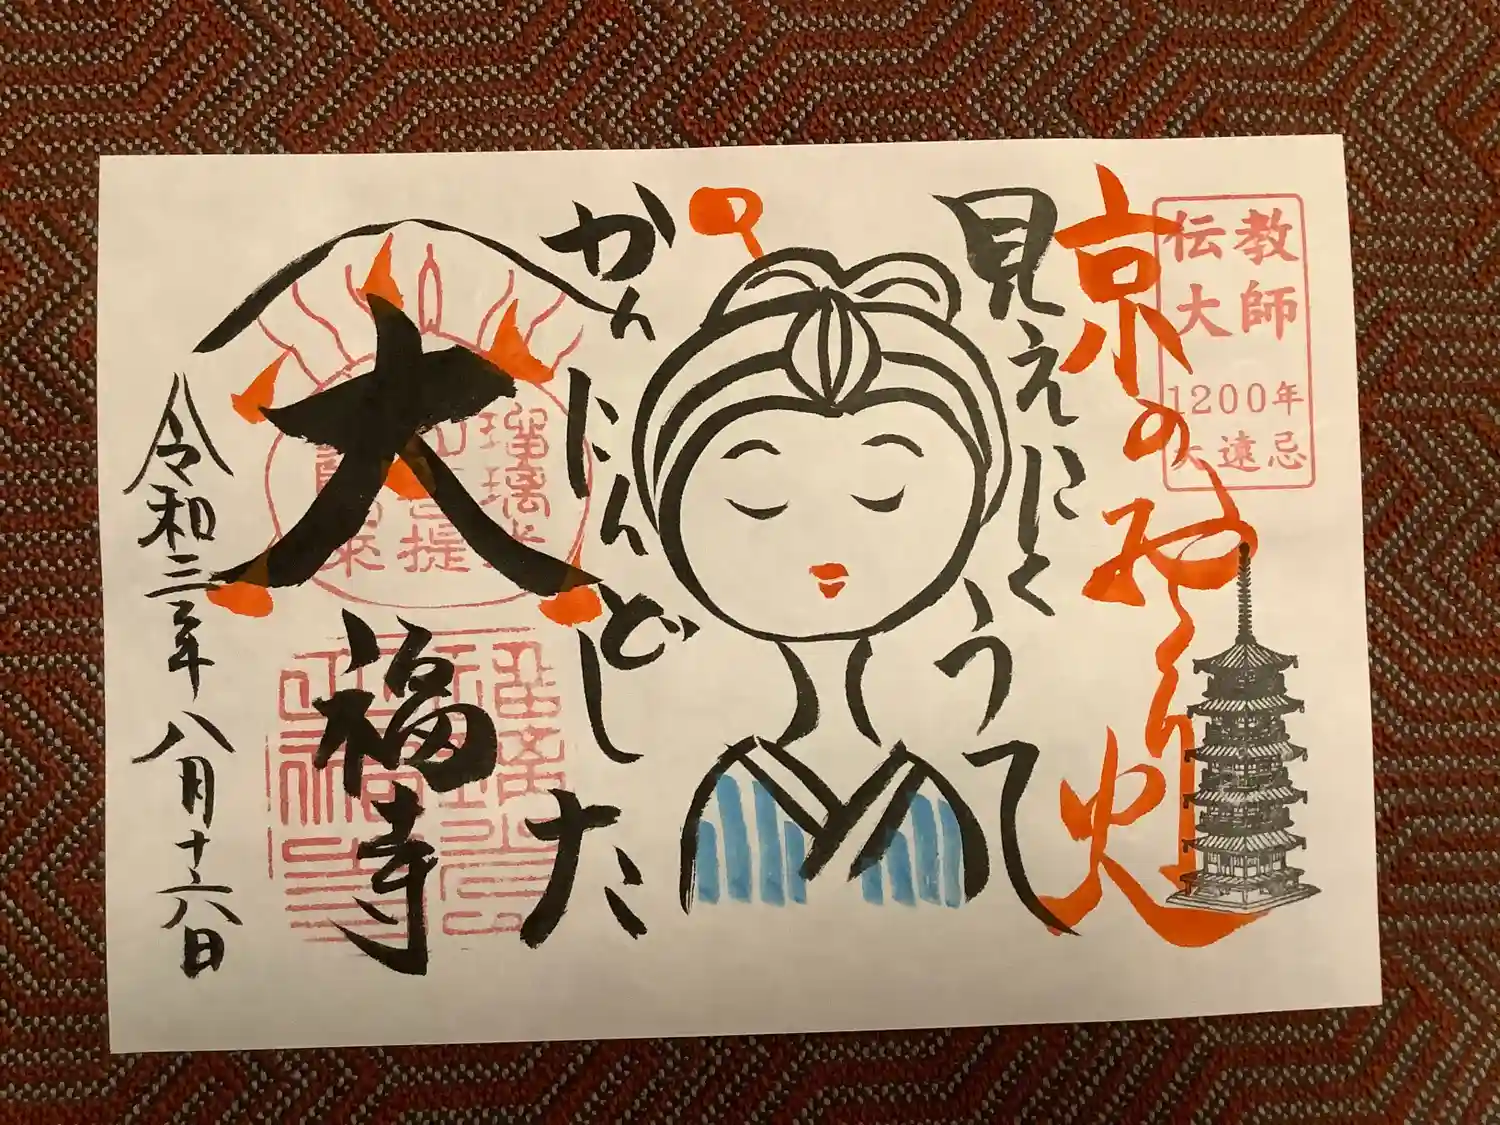 伝教
大師
1200年
大遠忌
京のおくり火
見えにくうて
かんにんどした
大福寺
令和三年八月十六日